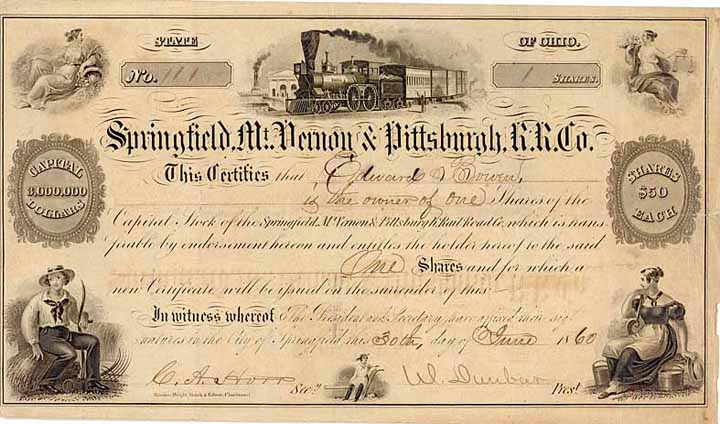 STATE OF OHIO.
No. 111 1 SHARES.
Springfield, Mt. Vernon & Pittsburgh, R.R. Co.
CAPITAL 3,000,000 DOLLARS
SHARES $50 EACH
This Certifies that Edward Bowen,
is the owner of one Shares of the
Capital Stock of the Springfield, Mt. Vernon & Pittsburgh Rail Road Co. which is trans-
ferable by endorsement hereon and entitles the holder hereof to the said
One Shares and for which a
new Certificate will be issued on the surrender of this.
In witness whereof The President and Secretary, have affixed their sig-
natures in the City of Springfield this 30th, day of June 1860
C. A. Secy. Wl. Dunbar Prest.